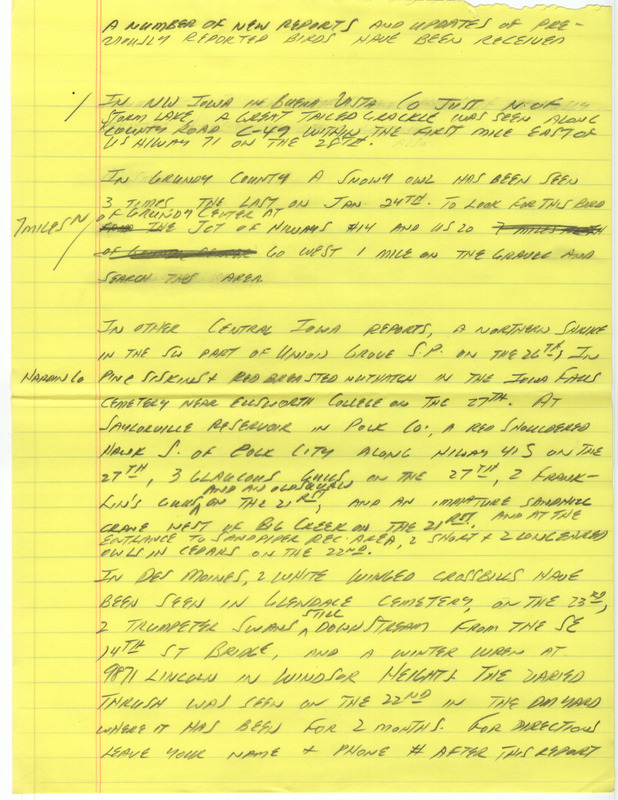 A NUMBER OF NEW REPORTS AND UPDATES OF PRE-
VIOUSLY REPORTED BIRDS HAVE BEEN RECEIVED
/ IN NW IOWA IN BUENA VISTA CO JUST N. OF
STORM LAKE, A GREAT TAILED GRACKLE WAS SEEN ALONG
COUNTY ROAD C-49 WITHIN THE FIRST MILE EAST OF
US HIWAY 71 ON THE 28TH.
IN GRUNDY COUNTY A SNOWY OWL HAS BEEN SEEN
3 TIMES THE LAST ON JAN 24TH. TO LOOK FOR THIS BIRD
7 MILES N / OF GRUNDY CENTER AT
THE JCT OF HIWAYS #14 AND US 20 7 MILES NORTH
OF GRUNDY CENTER GO WEST 1 MILE ON THE GRAVEL AND
SEARCH THIS AREA
IN OTHER CENTRAL IOWA REPORTS, A NORTHERN SHRIKE
IN THE SW PART OF UNION GROVE S.P. ON THE 26TH; IN
HARDIN CO PINE SISKINS + RED BREASTED NUTHATCH IN THE IOWA FALLS
CEMETERY NEAR ELLSWORTH COLLEGE ON THE 27TH. AT
SAYLORVILLE RESERVOIR IN POLK CO., A RED SHOULDERED
HAWK S. OF POLK CITY ALONG HIWAY 415 ON THE
27TH, 3 GLAUCOUS GULLS ON THE 27TH, 2 FRANK-
AND AN OLDSQUAW
LIN'S GULLS ON THE 21RST, AND AN IMMATURE SANDHILL
CRANE WEST OF BIG CREEK ON THE 21RST. AND AT THE
ENTRANCE TO SANDPIPER REC. AREA, 2 SHORT + 2 LONG EARED
OWLS IN CEDARS ON THE 22ND.
IN DES MOINES, 2 WHITE WINGED CROSSBILLS HAVE
BEEN SEEN IN GLENDALE CEMETERY, ON THE 23RD,
2 TRUMPETER SWANS STILL DOWNSTREAM FROM THE SE
14TH ST BRIDGE, AND A WINTER WREN AT
9871 LINCOLN IN WINDSOR HEIGHTS. THE VARIED
THRUSH WAS SEEN ON THE 22ND IN THE DM YARD
WHERE IT HAS BEEN FOR 2 MONTHS. FOR DIRECTIONS
LEAVE YOUR NAME + PHONE # AFTER THIS REPORT